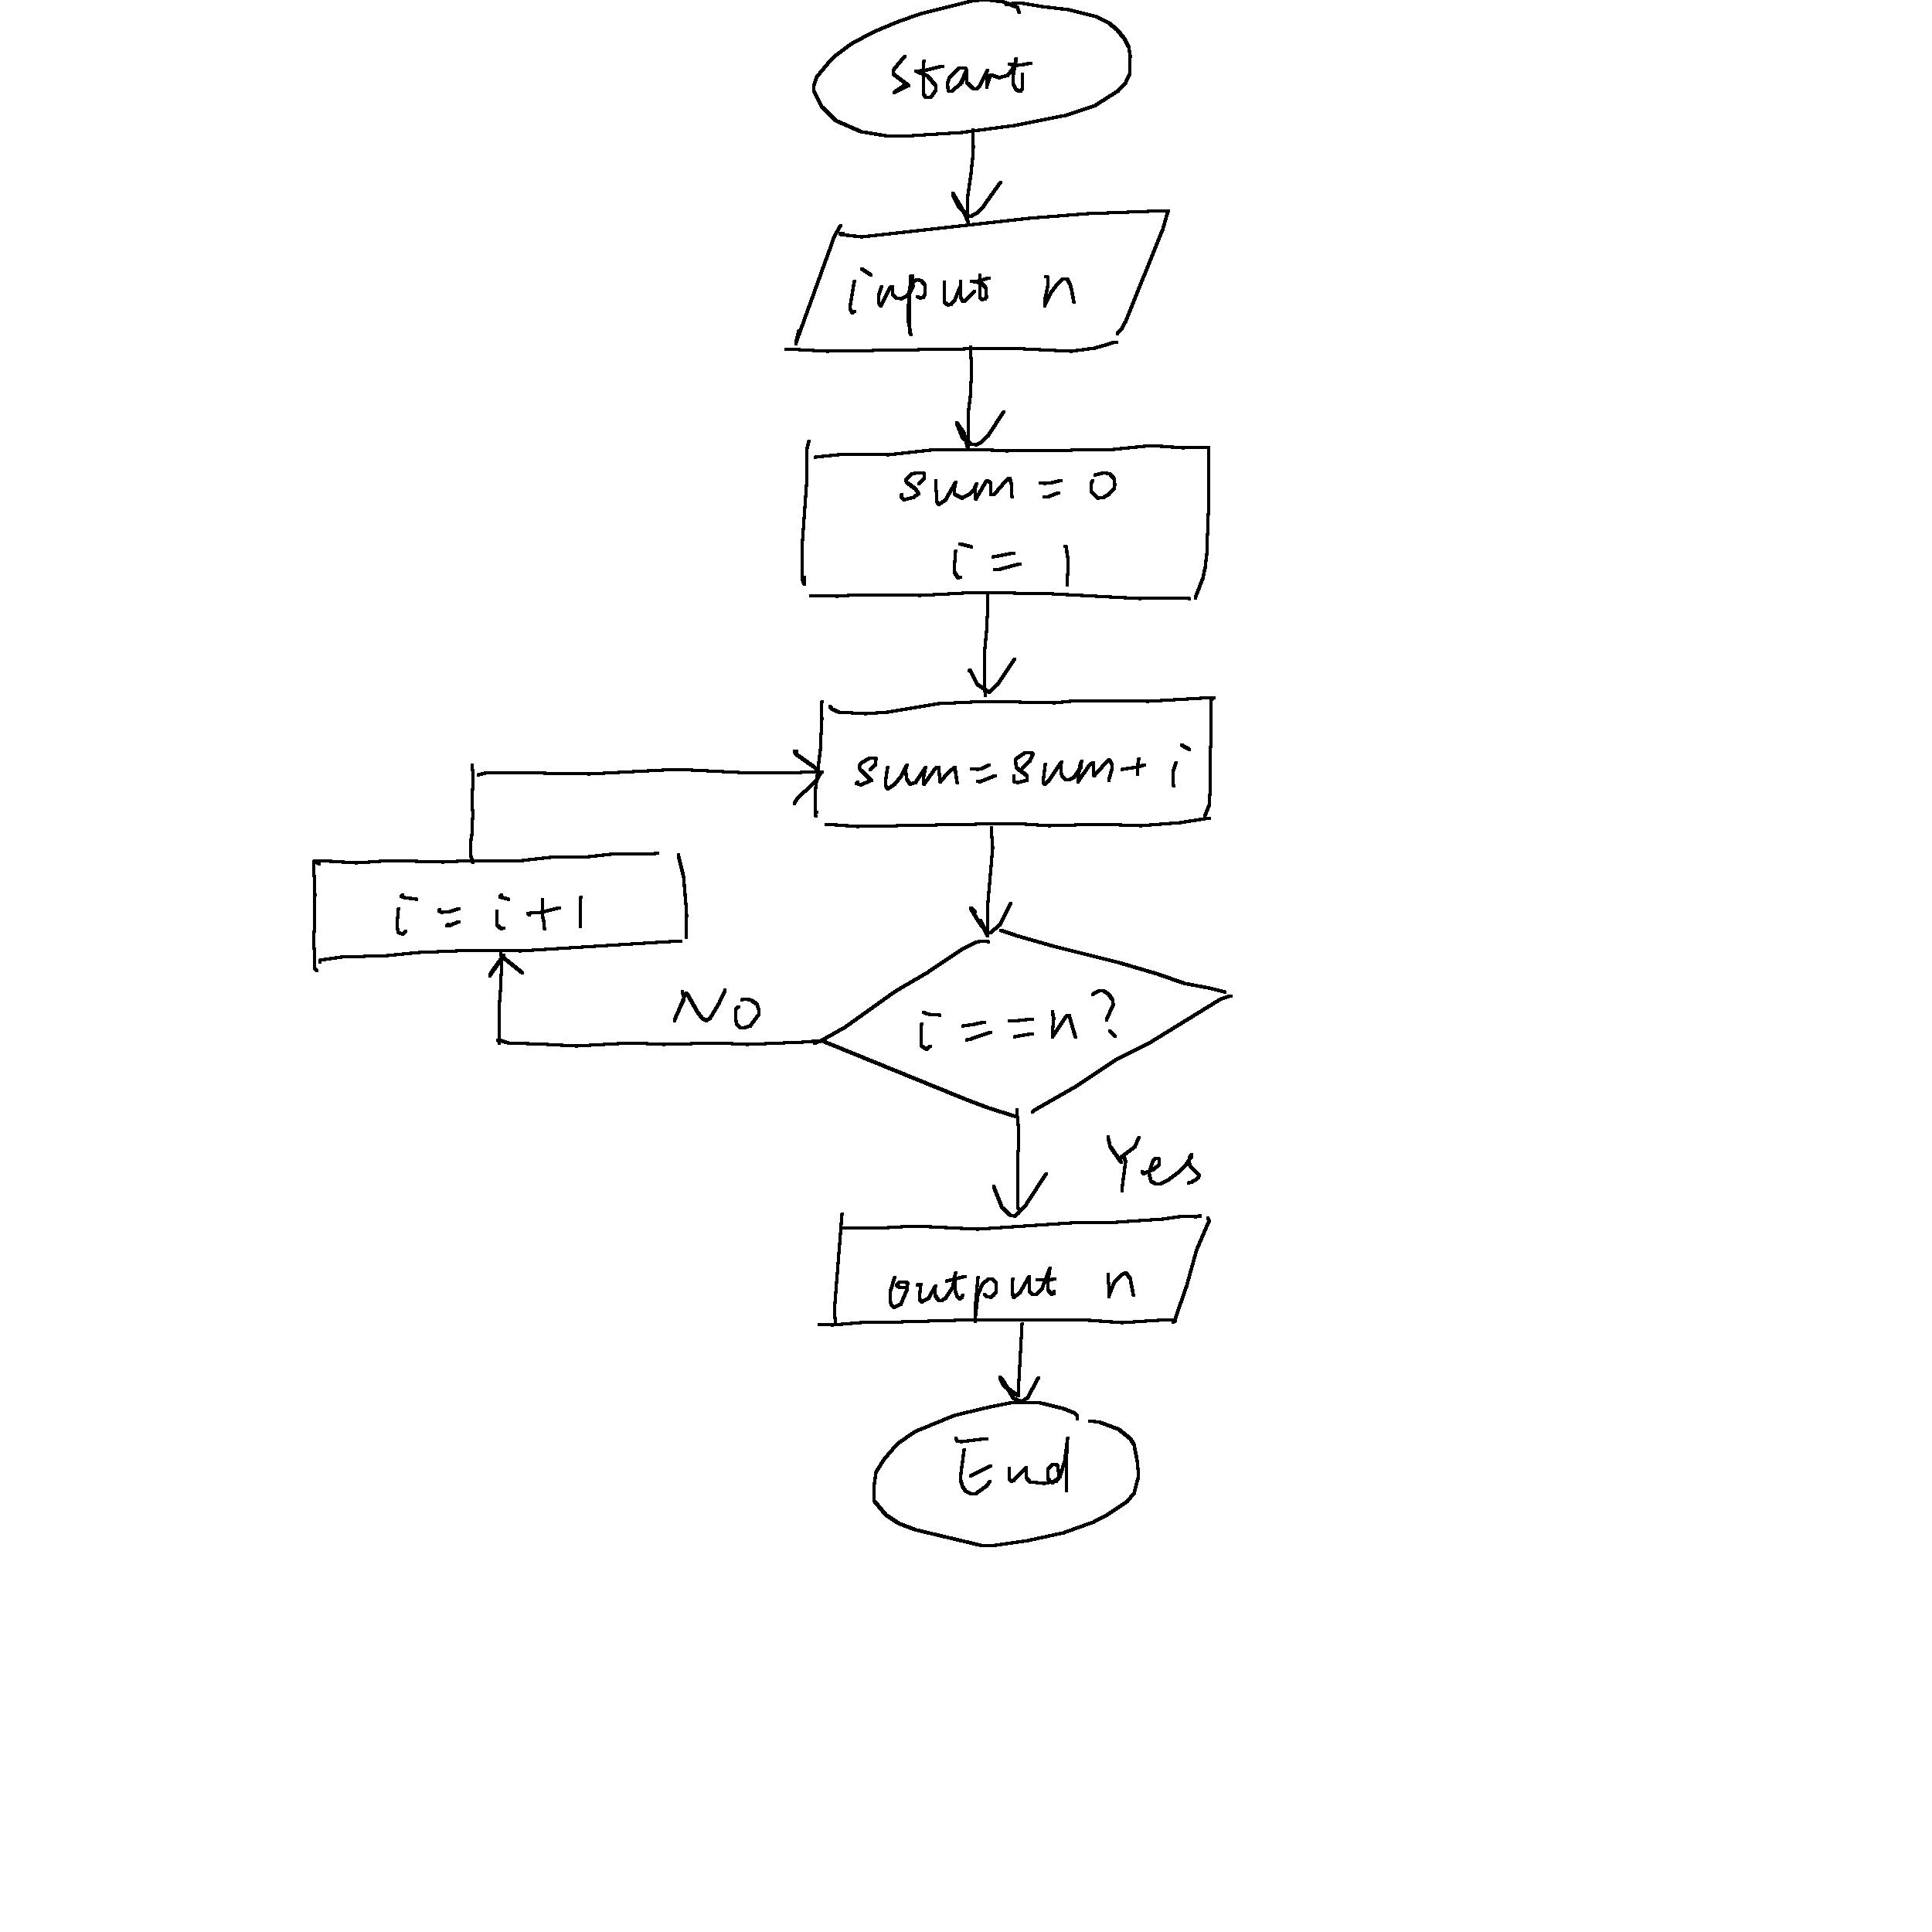 start
input n
sum = 0
i = 1
sum=sum+ i
i = i +1
No
i ==n?
Yes
output n
End